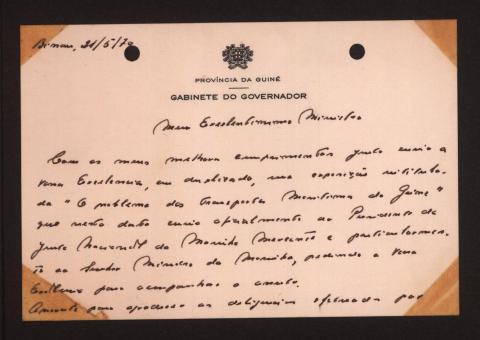 Bissau, 21/5/70
PROVÍNCIA DA GUINÉ
GABINETE DO GOVERNADOR
Meu Excelentíssimo Ministro
Com os meus melhores cumprimentos junto envio a
Vossa Excelencia, em duplicado, uma exposição intitula-
da "O problema dos Transportes Maritimos da Guine"
que nesta data envio oficialmente ao Presidente da
Junta Nacional da Marinha Mercante e particularmen-
te ao Senhor Ministro da Marinha, pedindo a Vossa
Excelencia para acompanhar o assunto.
para agradecer as diligencias efectuadas por